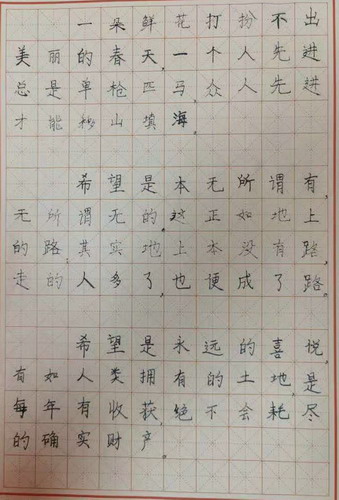 一朵鲜花打扮不出
美丽的春天，一个人先进
总是单枪匹马，众人先进
才能移山填海。
希望是本无所谓有，
无所谓无的，这正如地上
的路，其实地上本没有路，
走的人多了，也便成了路。
希望是永远的喜悦，
有如人类拥有的土地，是
每年有收获，绝不会耗尽
的确实财产。